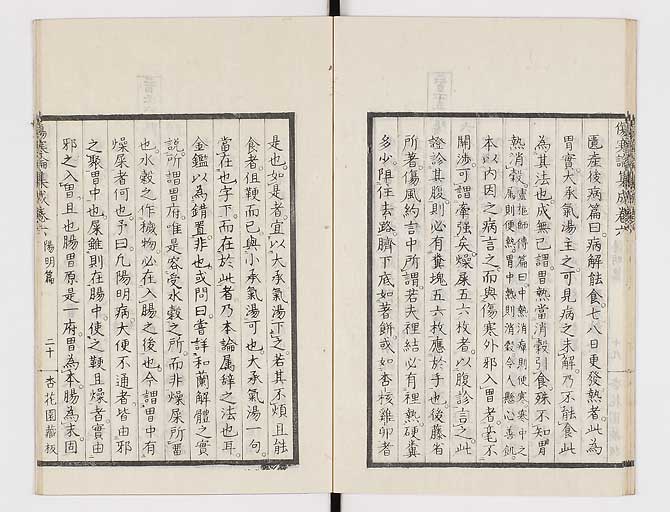 匱産後病篇曰病解能食七八日更發熱者此為
胃實大承氣湯主之可見病之未解乃不能食此
為其法也成無己謂胃熱當消穀引食殊不知胃
熱消穀靈樞師傳篇曰中熱消癉則便寒寒中之
屬則便熱胃中熱則消穀令人懸心善飢
本以内因之病言之而與傷寒外邪入胃者毫不
關涉可謂牽強矣燥屎五六枚者以腹診言之此
證診其腹則必有糞塊五六枚應於手也後藤省
所著傷風約言中所謂若夫裡結必有裡熱硬糞
多少在去路臍下底如著餅或如杏核雞卵者
是也如是者宜以大承氣湯下之若其不煩且能
食者但鞕而已與小承氣湯可也大承氣湯一句
當在也字下而在於此者乃本論属辞之法也耳
金鑑以為錯置非也或問曰嘗詳和蘭解體之實
說所謂胃府惟是容受水穀之所而非燥屎所畱
也水穀之作穢物必在入腸之後也今謂胃中有
燥屎者何也予曰凡陽明病大便不通者皆由邪
之聚胃中也屎雖則在腸中使之鞕且燥者實由
邪之入胃且也腸胃原是一府胃為本腸為末固
傷寒論集成卷六 陽明篇 二十 杏花園藏板